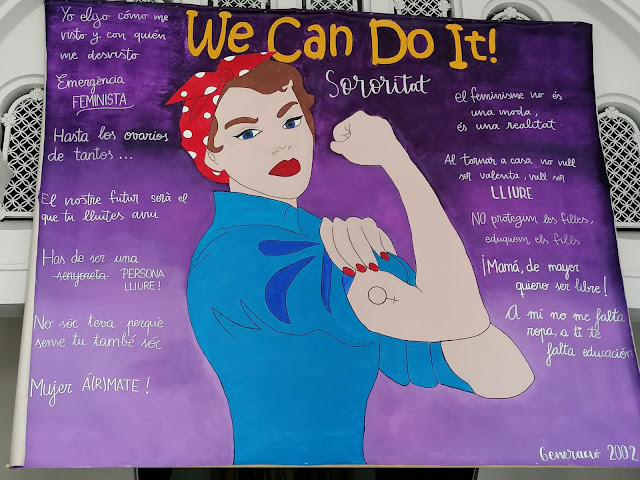 We Can Do It!
Sororitat
Yo elijo cómo me
visto y con quién
me desvisto
Emergència
FEMINISTA
Hasta los ovarios
de tantos ...
El nostre futur serà el
que tu lluites avui
Has de ser una
senyoreta PERSONA
LLIURE!
No sóc teva perquè
sense tu també sóc
Mujer Á(R)MATE!
el feminisme no és
una moda,
és una realitat.
Al tornar a casa no vull
ser valenta, vull ser
LLIURE
NO protegim les filles,
eduquem els fills
¡Mamá, de mayor
quiero ser libre!
A mí no me falta
ropa, a ti te
falta educación
Generació 2002